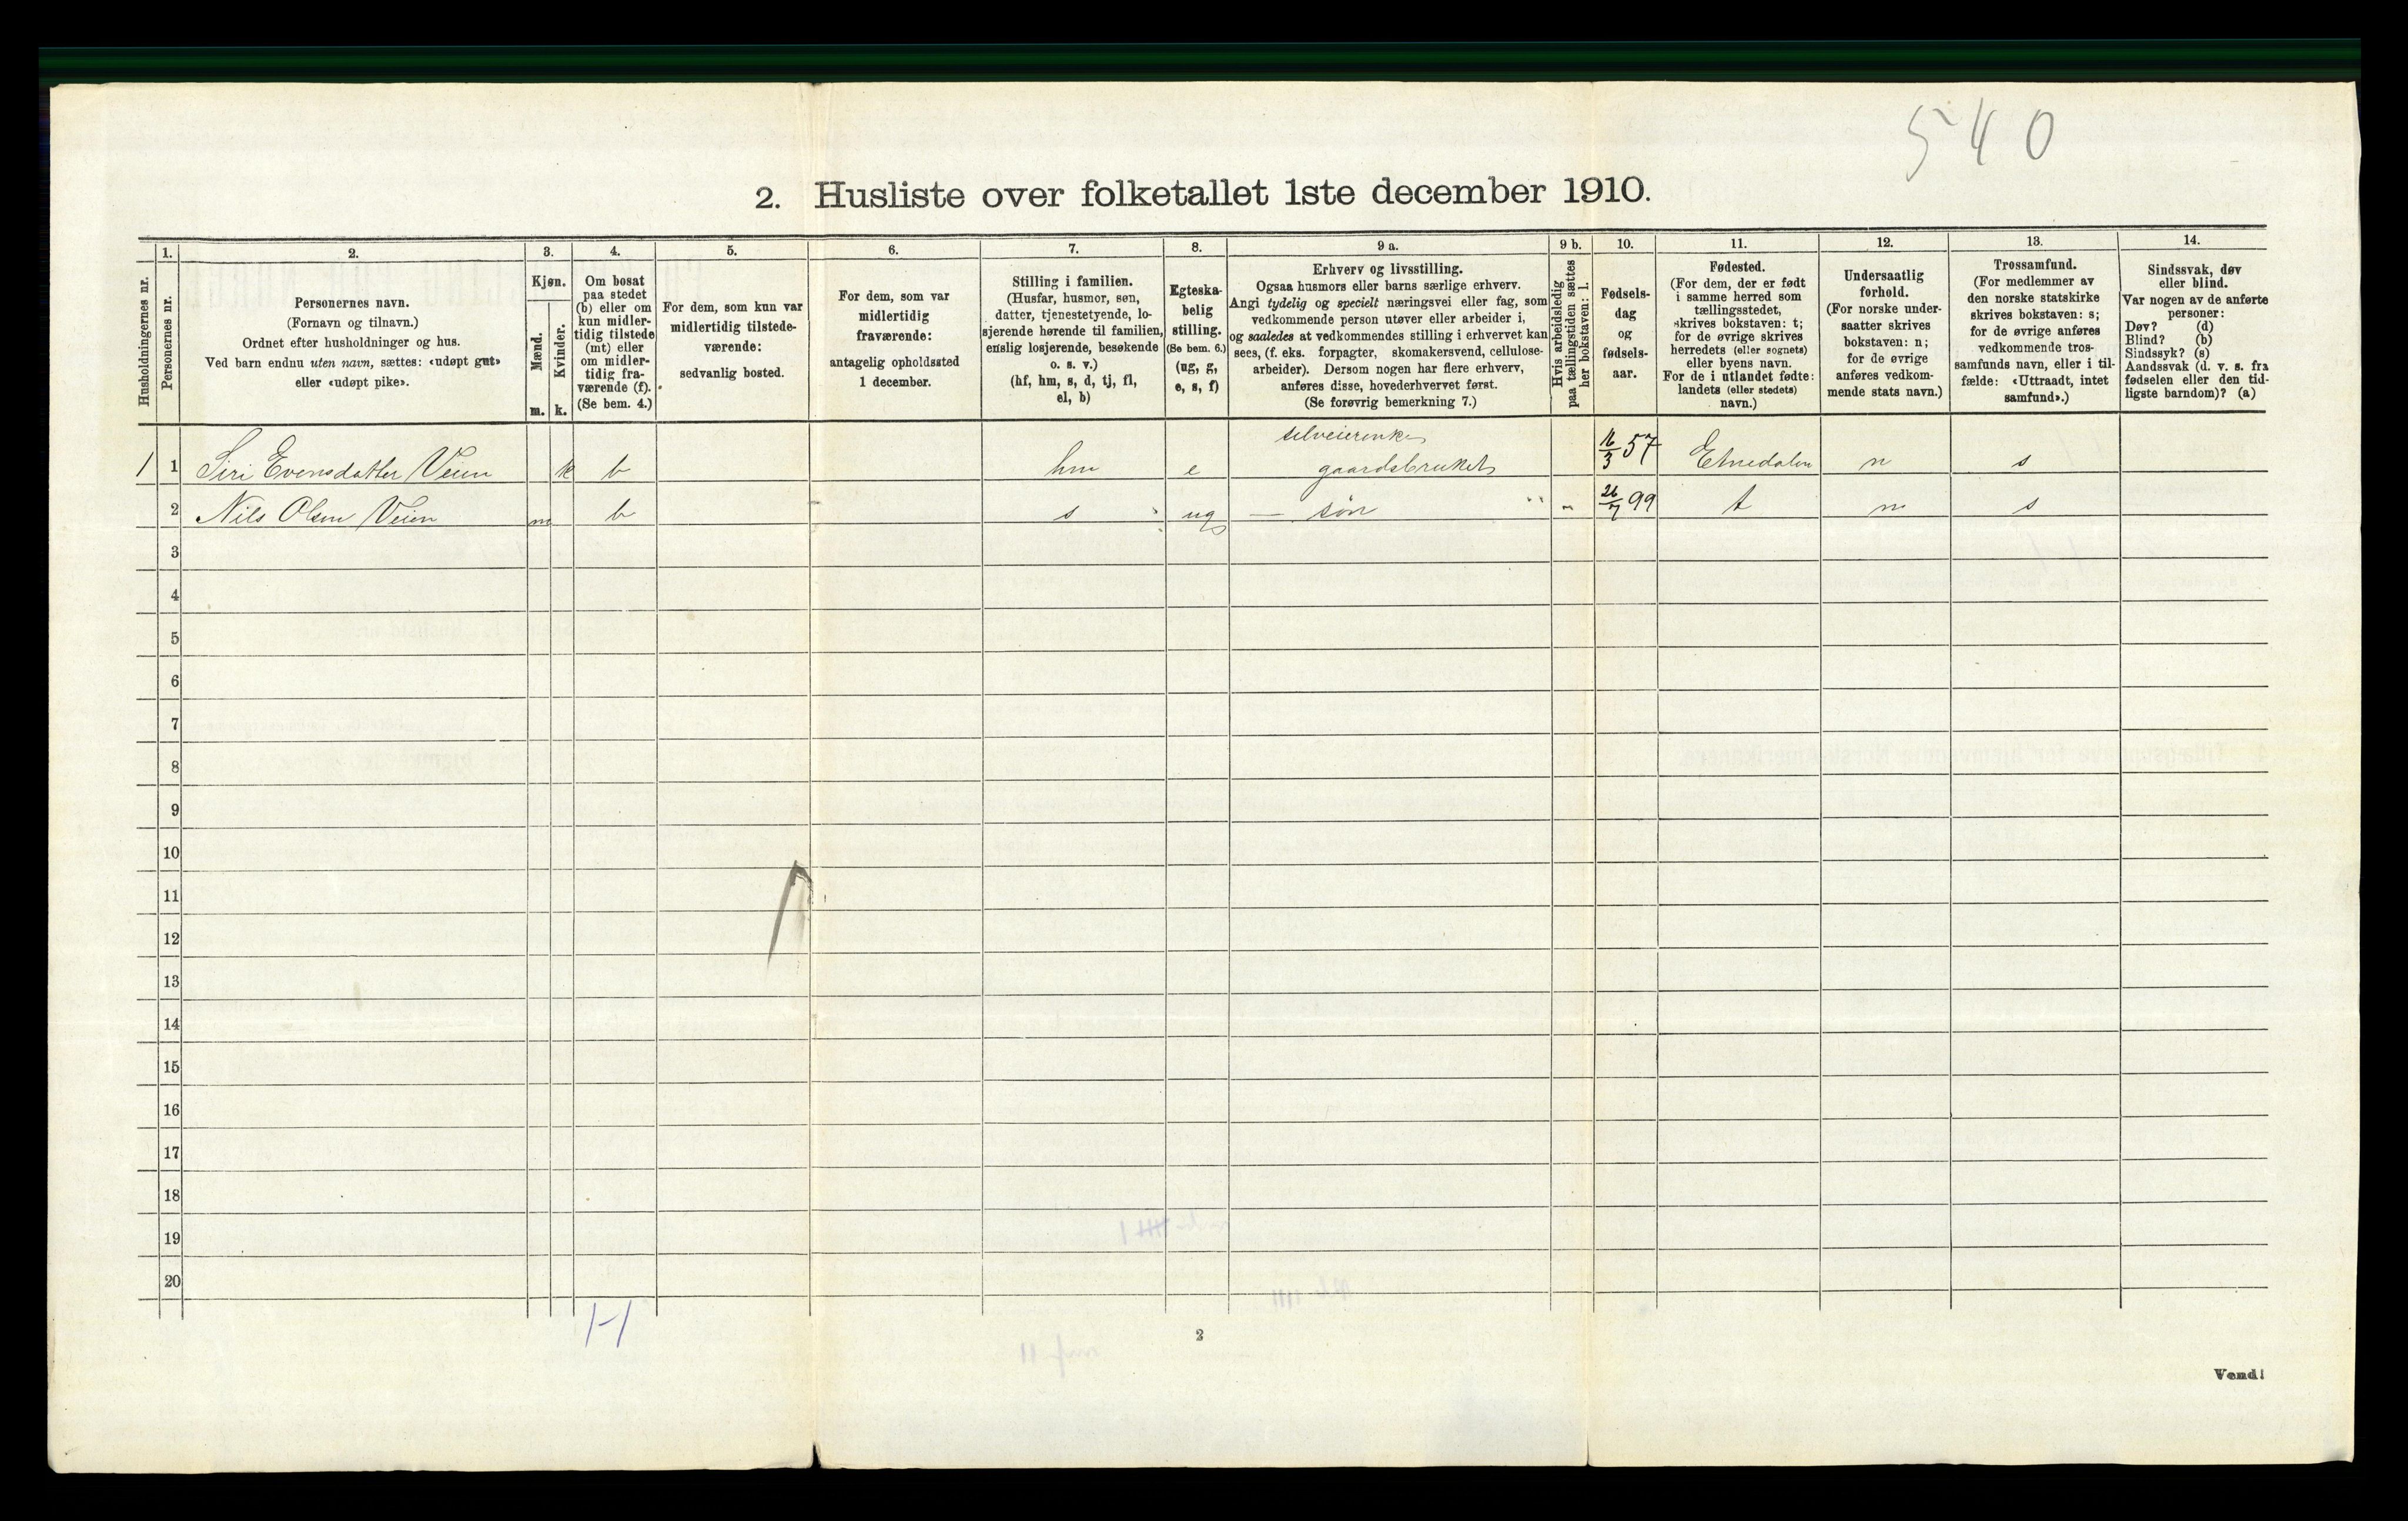 540
2. Husliste over folketallet 1ste december 1910.
Husholdningernes nr.
1.
Personernes nr.
2.
Personernes navn.
(Fornavn og tilnavn.)
Ordnet efter husholdninger og hus.
Ved barn endnu uten navn, sættes: «udøpt gut»
eller «udøpt pike».
3.
Kjøn.
Mænd.
Kvinder.
m. k.
4.
Om bosat
paa stedet
(b) eller om
kun midler-
tidig tilstede
(mt) eller
om midler-
tidig fra-
værende (f).
(Se bem. 4.)
5.
For dem, som kun var
midlertidig tilstede-
værende:
sedvanlig bosted.
6.
For dem, som var
midlertidig
fraværende:
antagelig opholdssted
1 december.
7.
Stilling i familien.
(Husfar, husmor, søn,
datter, tjenestetyende, lo-
sjerende hørende til familien,
enslig losjerende, besøkende
o. s. v.)
(hf, hm, s, d, tj, fl,
el, b)
8.
Egteska-
belig
stilling.
(Se bem. 6.)
(ug, g,
e, s, f)
9 a.
Erhverv og livsstilling.
Ogsaa husmors eller barns særlige erhverv.
Angi tydelig og specielt næringsvei eller fag, som
vedkommende person utøver eller arbeider i,
og saaledes at vedkommendes stilling i erhvervet kan
sees, (f. eks. forpagter, skomakersvend, cellulose-
arbeider). Dersom nogen har flere erhverv,
anføres disse, hovederhvervet først.
(Se forøvrig bemerkning 7.)
9 b.
Hvis arbeidsledig
paa tællingstiden sættes
her bokstaven: l.
10.
Fødsels-
dag
og
fødsels-
aar.
11.
Fødested.
(For dem, der er født
i samme herred som
tællingsstedet,
skrives bokstaven: t;
for de øvrige skrives
herredets (eller sognets)
eller byens navn.
For de i utlandet fødte:
landets (eller stedets)
navn.)
12.
Undersaatlig
forhold.
(For norske under-
saatter skrives
bokstaven: n;
for de øvrige
anføres vedkom-
mende stats navn.)
13.
Trossamfund.
(For medlemmer av
den norske statskirke
skrives bokstaven: s;
for de øvrige anføres
vedkommende tros-
samfunds navn, eller i til-
fælde: «Uttraadt, intet
samfund».)
14.
Sindssvak, døv
eller blind.
Var nogen av de anførte
personer:
Døv? (d)
Blind? (b)
Sindssyk? (s)
Aandssvak (d. v. s. fra
fødselen eller den tid-
ligste barndom)? (a)
selveierenke
1 1 Siri Evensdatter Veien k b hm e gaardsbruket 16/3 57 Etnedalen n s
2 Nils Olsen Veien m b s ug — søn " " 26/7 99 t n s
3
4
5
6
7
8
9
10
11
12
13
14
15
16
17
18
19
20
1-1
2
Vend!